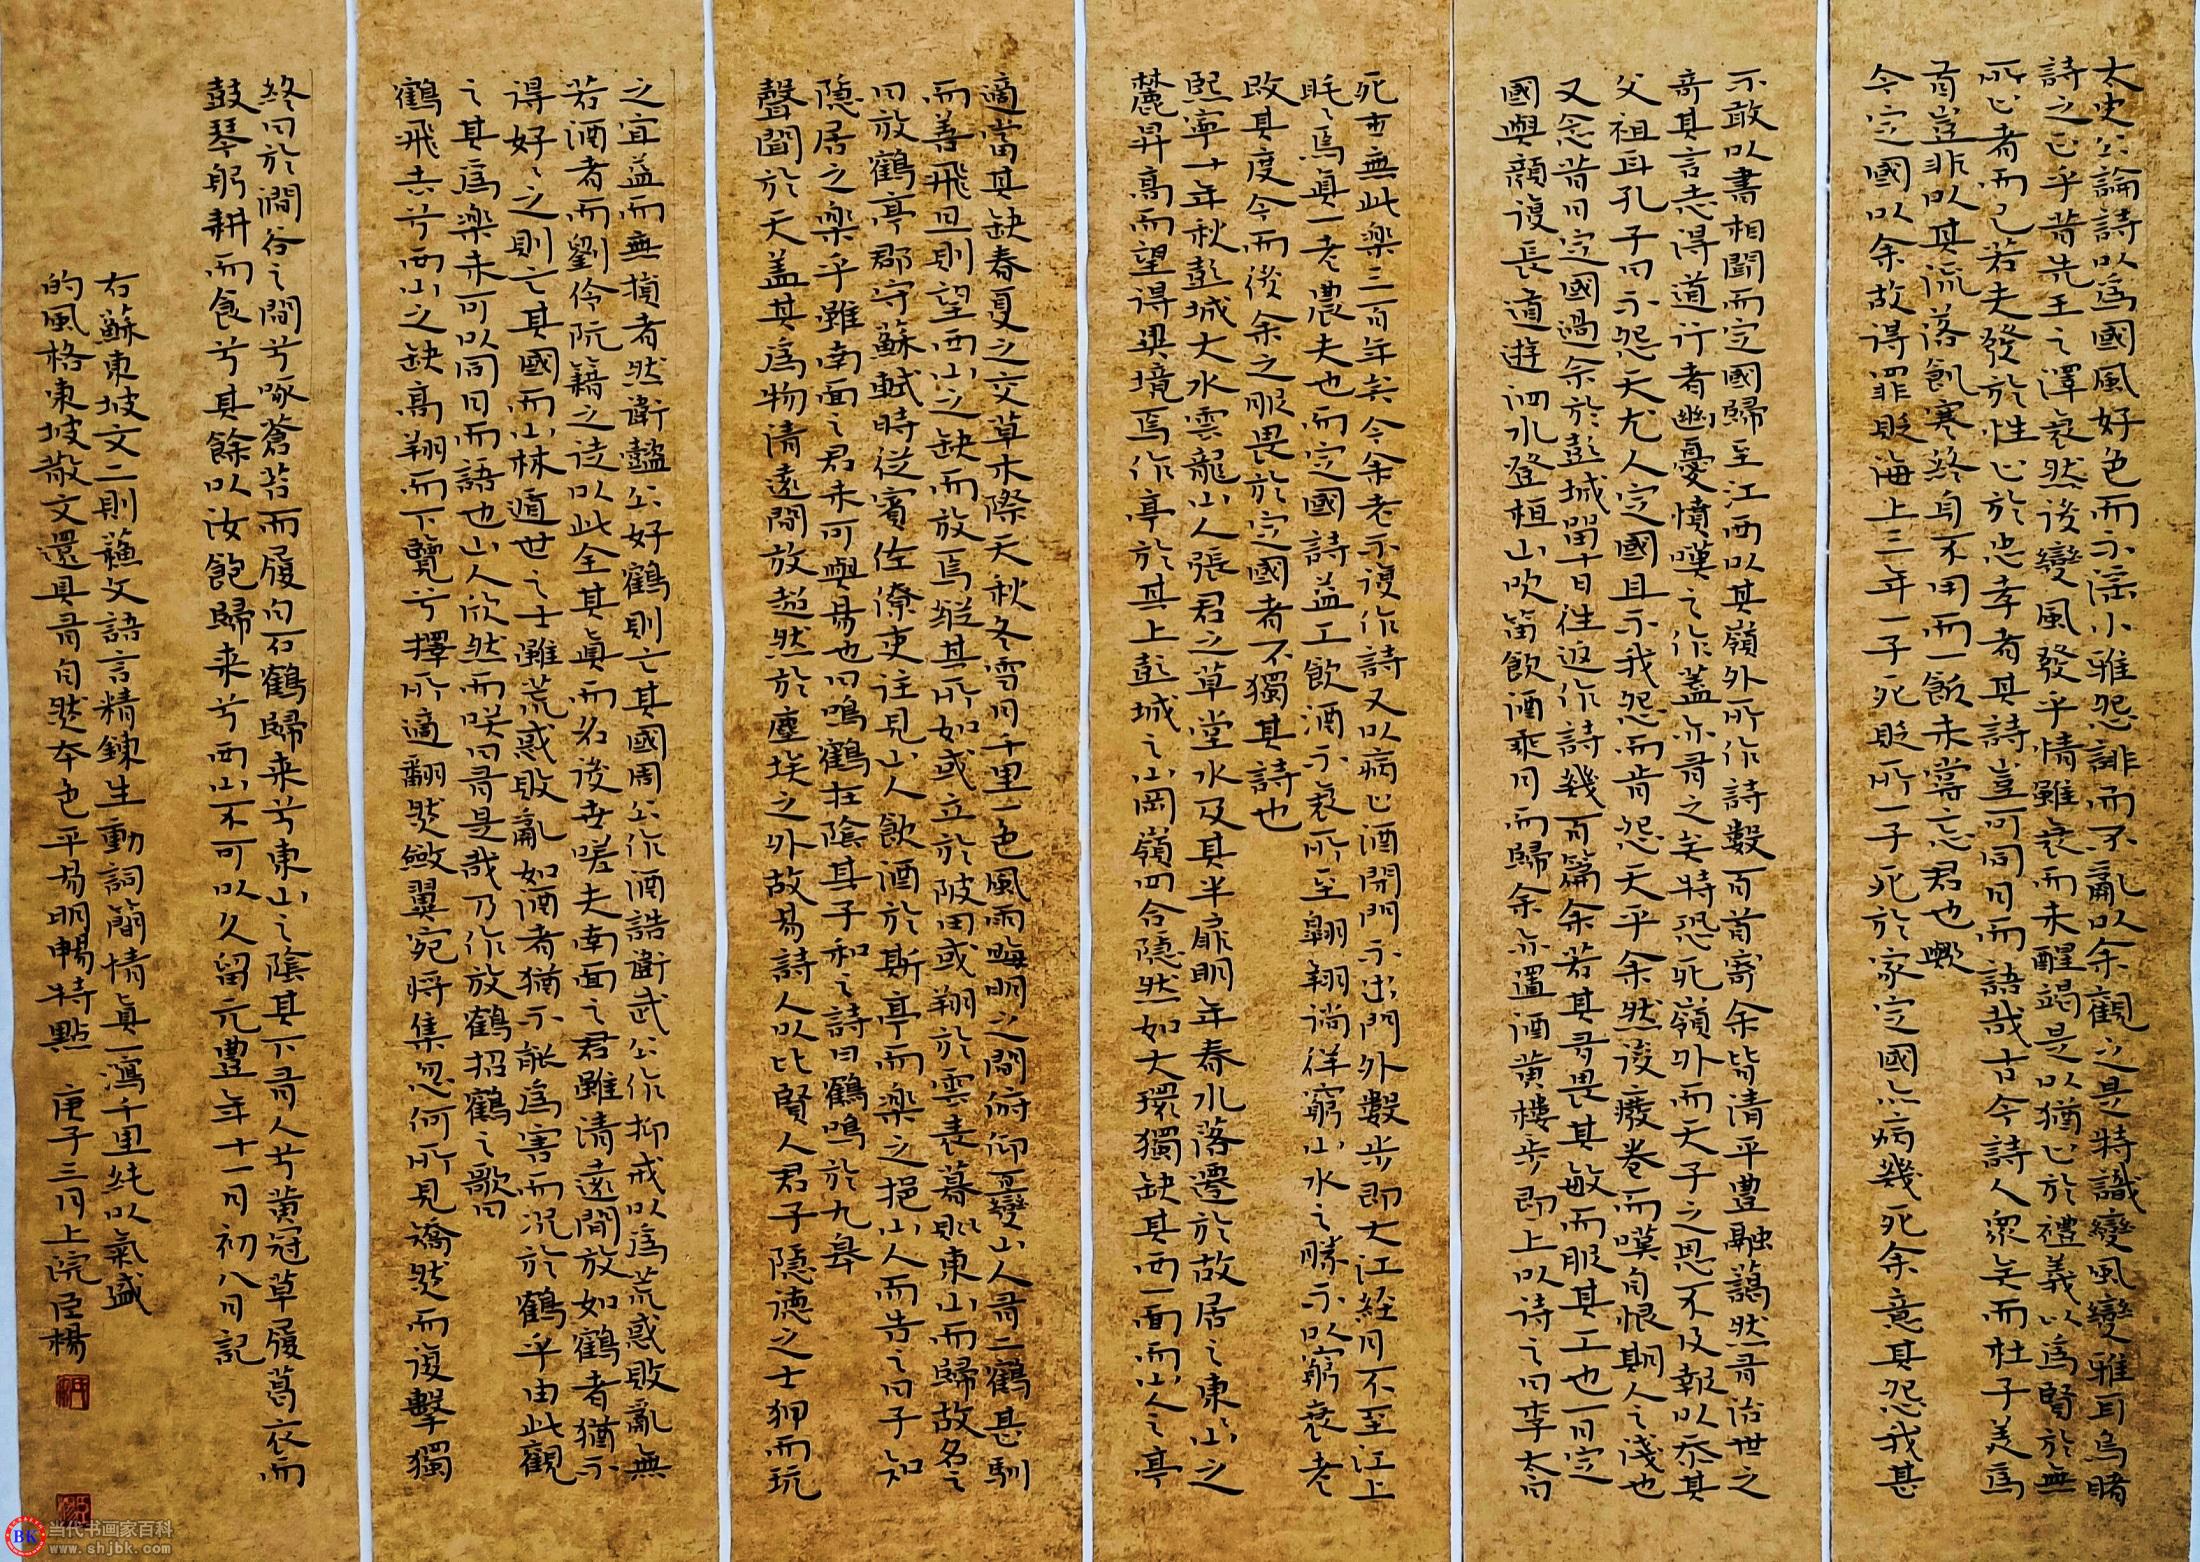 太史公論詩以為國風好色而不淫小雅怨誹而不亂以余觀之是特識變風變雅耳烏睹
詩之正乎昔先王之澤衰然後變風發乎情雖衰而未醒竭是以猶止於禮義以為賢於無
所止者而已若夫發於性止於忠孝者其詩豈可同日而語哉古今詩人眾矣而杜子美為
首豈非以其流落飢寒終身不用而一飯未嘗忘君也歟
今定國以余故得罪貶海上三年一子死貶所一子死於家定國亦病幾死余意其怨我甚
不敢以書相聞而定國歸至江西以其嶺外所作詩數百首寄余皆清平豐融藹然有治世之
音其言志得道行者幽憂憤嘆之作蓋亦有之矣特恐死嶺外而天子之恩不及報以忝其
父祖耳孔子曰不怨天尤人定國且不我怨而肯怨天乎余然後廢卷而嘆自恨期人之淺也
又念昔日定國過余於彭城留十日往返作詩幾百篇余若其有畏其敏而服其工也一日定
國與顏復長道遊泗水登桓山吹笛飲酒乘月而歸余亦置酒黃樓步即上以詩之曰李太白
死世無此樂三百年矣今余老不復作詩又以病止酒閉門不出門外數步即大江經月不至江上
眊眊焉真一老農夫也而定國詩益工飲酒不衰所至翱翔徜徉窮山水之勝不以窮衰老
改其度今而後余之服畏於定國者不獨其詩也
熙寧十年秋彭城大水雲龍山人張君之草堂水及其半扉明年春水落遷於故居之東山之
麓昇高而望得異境焉作亭於其上彭城之山岡嶺四合隱然如大環獨缺其西一面而山人之亭
適當其缺春夏之交草木際天秋冬雪月千里一色風雨晦明之間俯仰百變山人有二鶴甚馴
而善飛旦則望西山之缺而放焉縱其所如或立於陂田或翔於雲表暮則東山而歸故名之
曰放鶴亭郡守蘇軾時從賓佐僚吏往見山人飲酒於斯亭而樂之挹山人而告之曰子知
隱居之樂乎雖南面之君未可與易也曰鳴鶴在陰其子和之詩曰鶴鳴於九皋
聲聞於天蓋其為物清遠閒放超然於塵埃之外故易詩人以比賢人君子隱德之士狎而玩
之宜益而無損者然衛懿公好鶴則亡其國周公作酒誥衛武公作抑戒以為荒惑敗亂無
若酒者而劉伶阮籍之徒以此全其真而名後世嗟夫南面之君雖清遠閒放如鶴者猶不
得好好之則亡其國而山林遁世之士雖荒惑敗亂如酒者猶不能為害而況於鶴乎由此觀
之其為樂未可以同日而語也山人欣然而笑曰有是哉乃作放鶴招鶴之歌曰
鶴飛去兮西山之缺高翔而下覽兮擇所適翻然斂翼宛將集忽何所見矯然而復擊獨
終日於澗谷之間兮啄蒼苔而履白石鶴歸來兮東山之陰其下有人兮黃冠草履葛衣而
鼓琴躬耕而食兮其餘以汝飽歸來兮西山不可以久留元豐年十一月初八日記
右蘇東坡文二則蘇文語言精鍊生動詞簡情真一瀉千里純以氣盛
的風格東坡散文還具有自然本色平易明暢特點 庚子三月上浣臣楊
BK 当代书画家百科
www.shjbk.com